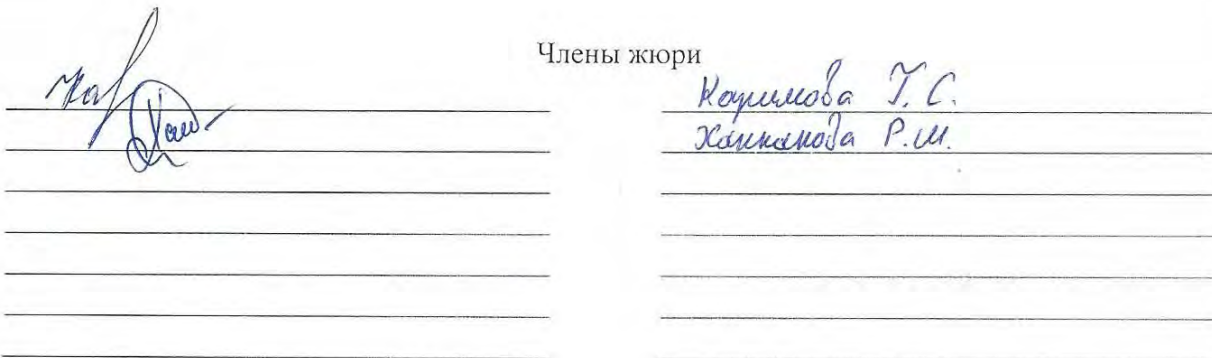 Члены жюри
Каримова Г. С.
Ханнанова Р. Ш.